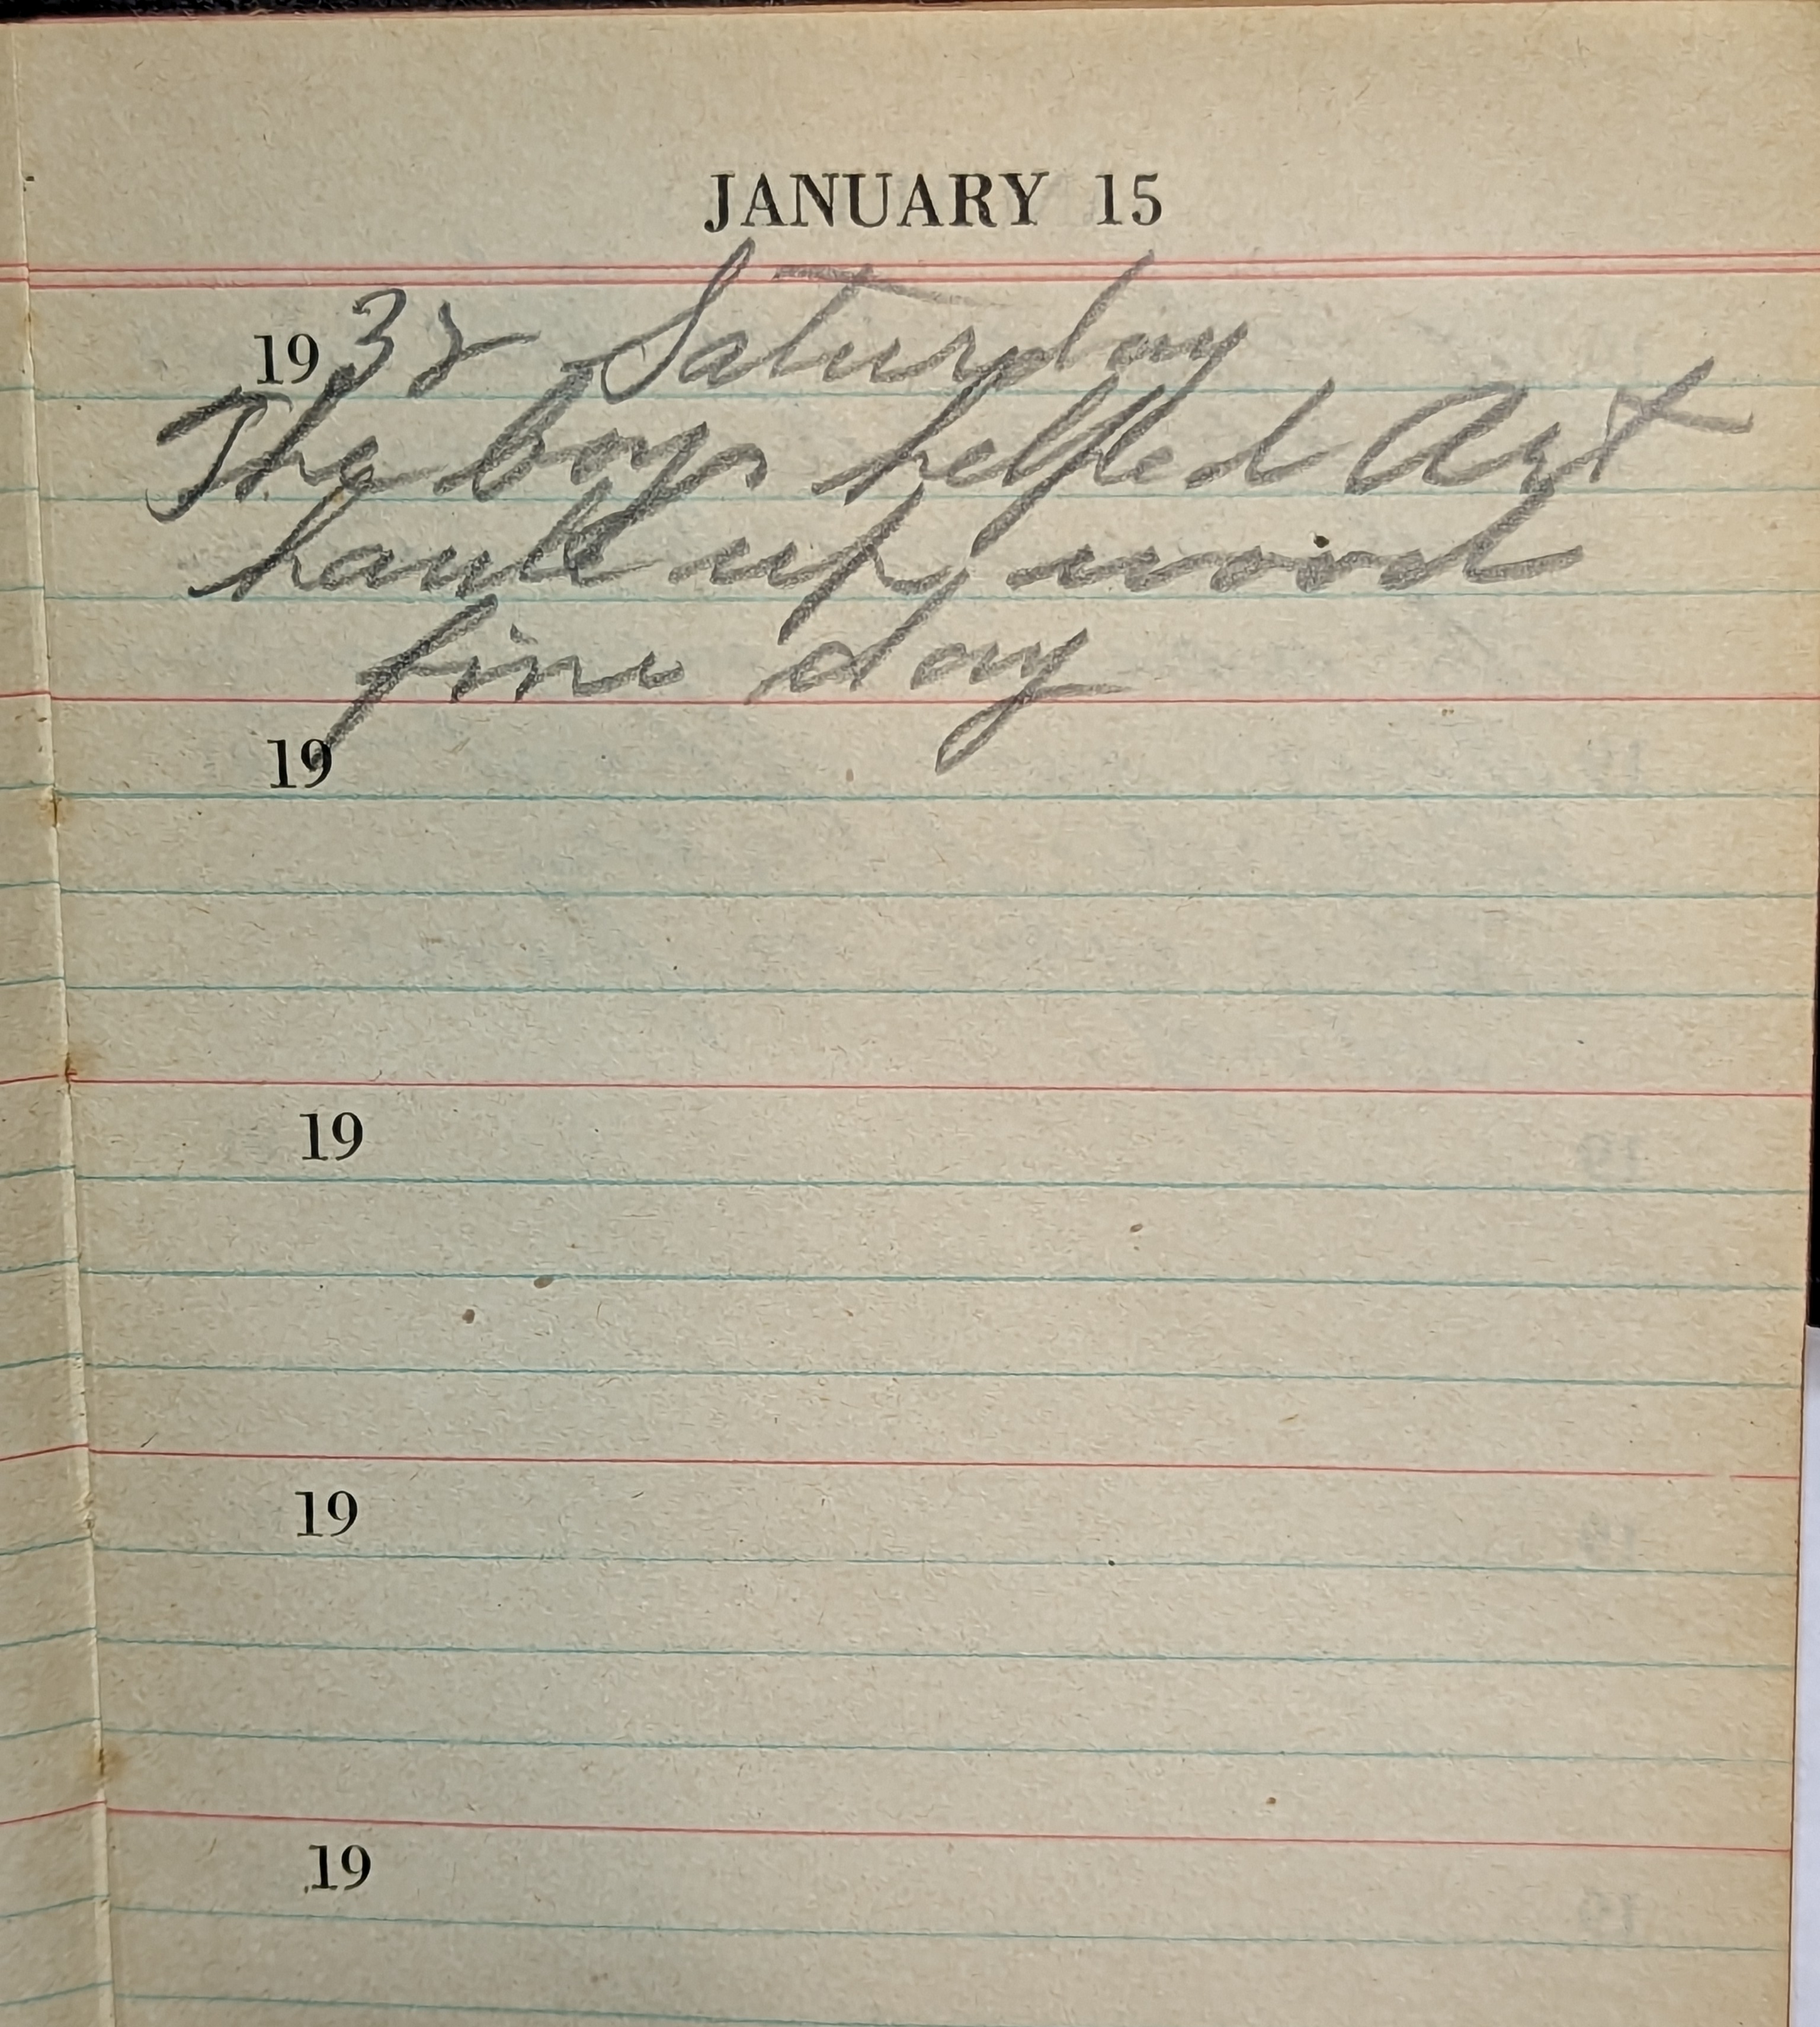 JANUARY 15
1938 Saturday
The boys helped Art
haul up wood
fine day
19
19
19
19